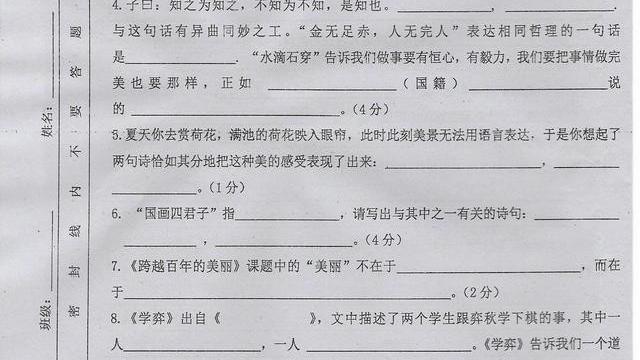 4.子曰：知之为知之，不知为不知，是知也。____________，____________
与这句话有异曲同妙之工。“金无足赤，人无完人”表达相同哲理的一句话
是____________.“水滴石穿”告诉我们做事要有恒心，有毅力，我们要把事情做完
美也要那样，正如____________（国籍）____________说
的____________。（4分）
5.夏天你去赏荷花，满池的荷花映入眼帘，此时此刻美景无法用语言表达，于是你想起了
两句诗恰如其分地把这种美的感受表现了出来：____________，____________
____________。（1分）
6.“国画四君子”指____________，请写出与其中之一有关的诗句：____________
____________，____________。（4分）
7.《跨越百年的美丽》课题中的“美丽”不在于____________，而在
于____________。（2分）
8.《学弈》出自《　　　　》，文中描述了两个学生跟弈秋学下棋的事，其中一
人____________，一人____________。《学弈》告诉我们一个道
姓名：
班级：
密封线内不要答题